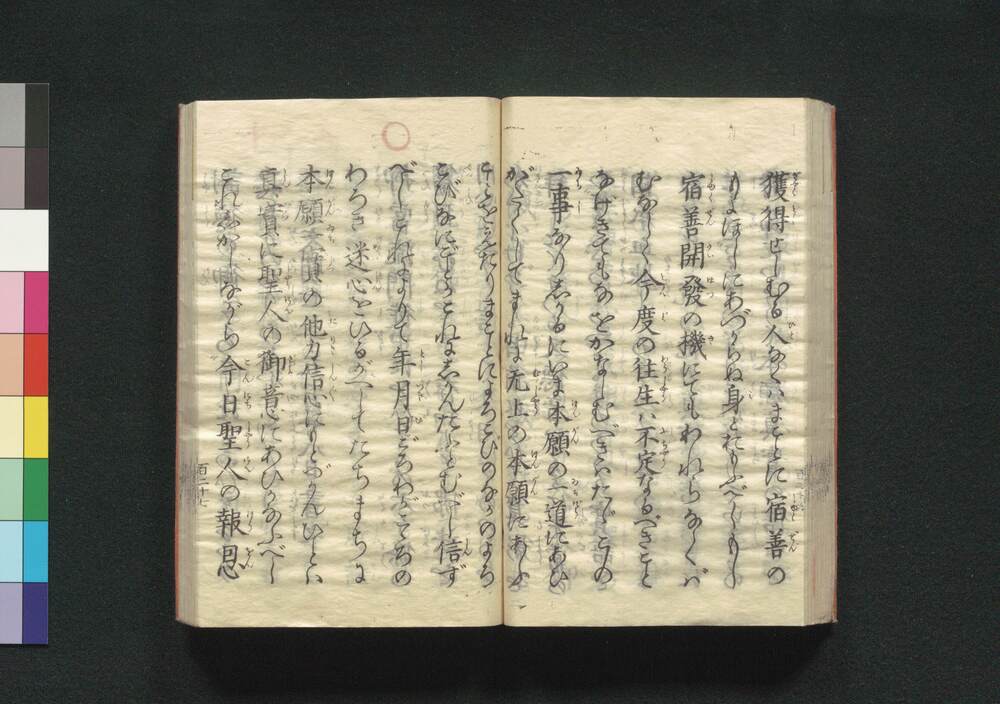 獲得せしむる人なくはまことに宿善の
もよほしにあづからぬ身とおもふべしもし
宿善開發の機にてもわれらなくば
むなしく今度の往生ハ不定なるべきこと
なげきてもなをかなしむべきはたゞこの
一事なりしかるにいま本願の一道にあひ
がたくしてまれに无上の本願にあふ
ことをえたりまことによろこびのなかのよろ
こびなにごとかこれにしかんたふとむべし信ず
べしこれによりて年月日ごろわがこゝろの
わろき迷心をひるがへしてたちまちに
本願一實の他力信心にもとづかんひとハ
眞實に聖人の御意にあひかなふべし
これしかしながら今日聖人の報恩
百二十七